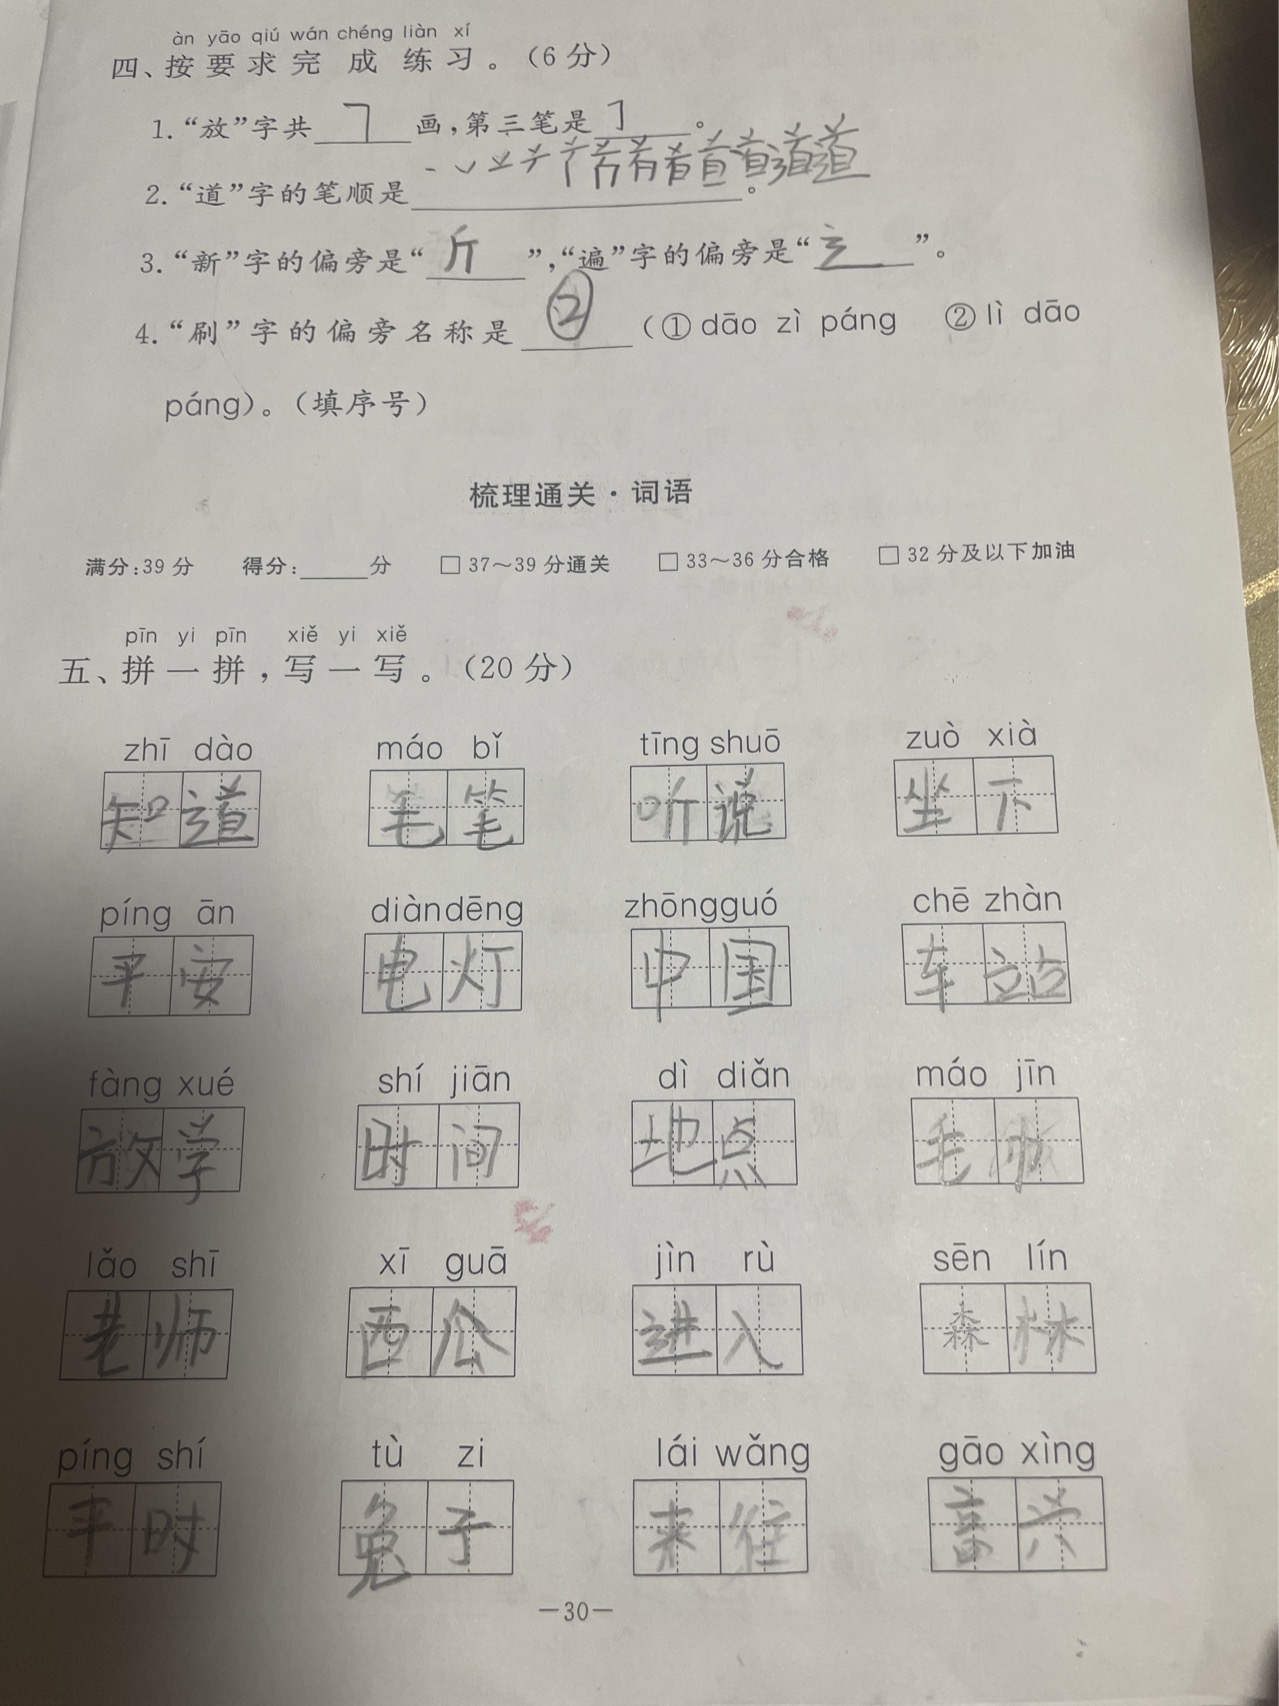 àn yāo qiú wán chéng liàn xí
四、按要求完成练习。（6分）
1.“放”字共 7 画，第三笔是 ㇆ 。
2.“道”字的笔顺是 。
3.“新”字的偏旁是“ 斤 ”，“遍”字的偏旁是“ 辶 ”。
4.“刷”字的偏旁名称是 ② （① dāo zì páng ② lì dāo
páng）。（填序号）
梳理通关·词语
满分：39分 得分：______分 □ 37～39分通关 □ 33～36分合格 □ 32分及以下加油
pīn yi pīn xiě yi xiě
五、拼一拼，写一写。（20分）
zhī dào máo bǐ tīng shuō zuò xià
知道 毛笔 听说 坐下
píng ān diàndēng zhōngguó chē zhàn
平安 电灯 中国 车站
fàng xué shí jiān dì diǎn máo jīn
放学 时间 地点 毛巾
lǎo shī xī guā jìn rù sēn lín
老师 西 进入 森林
píng shí tù zi lái wǎng gāo xìng
平时 兔子 来往 高兴
—30—